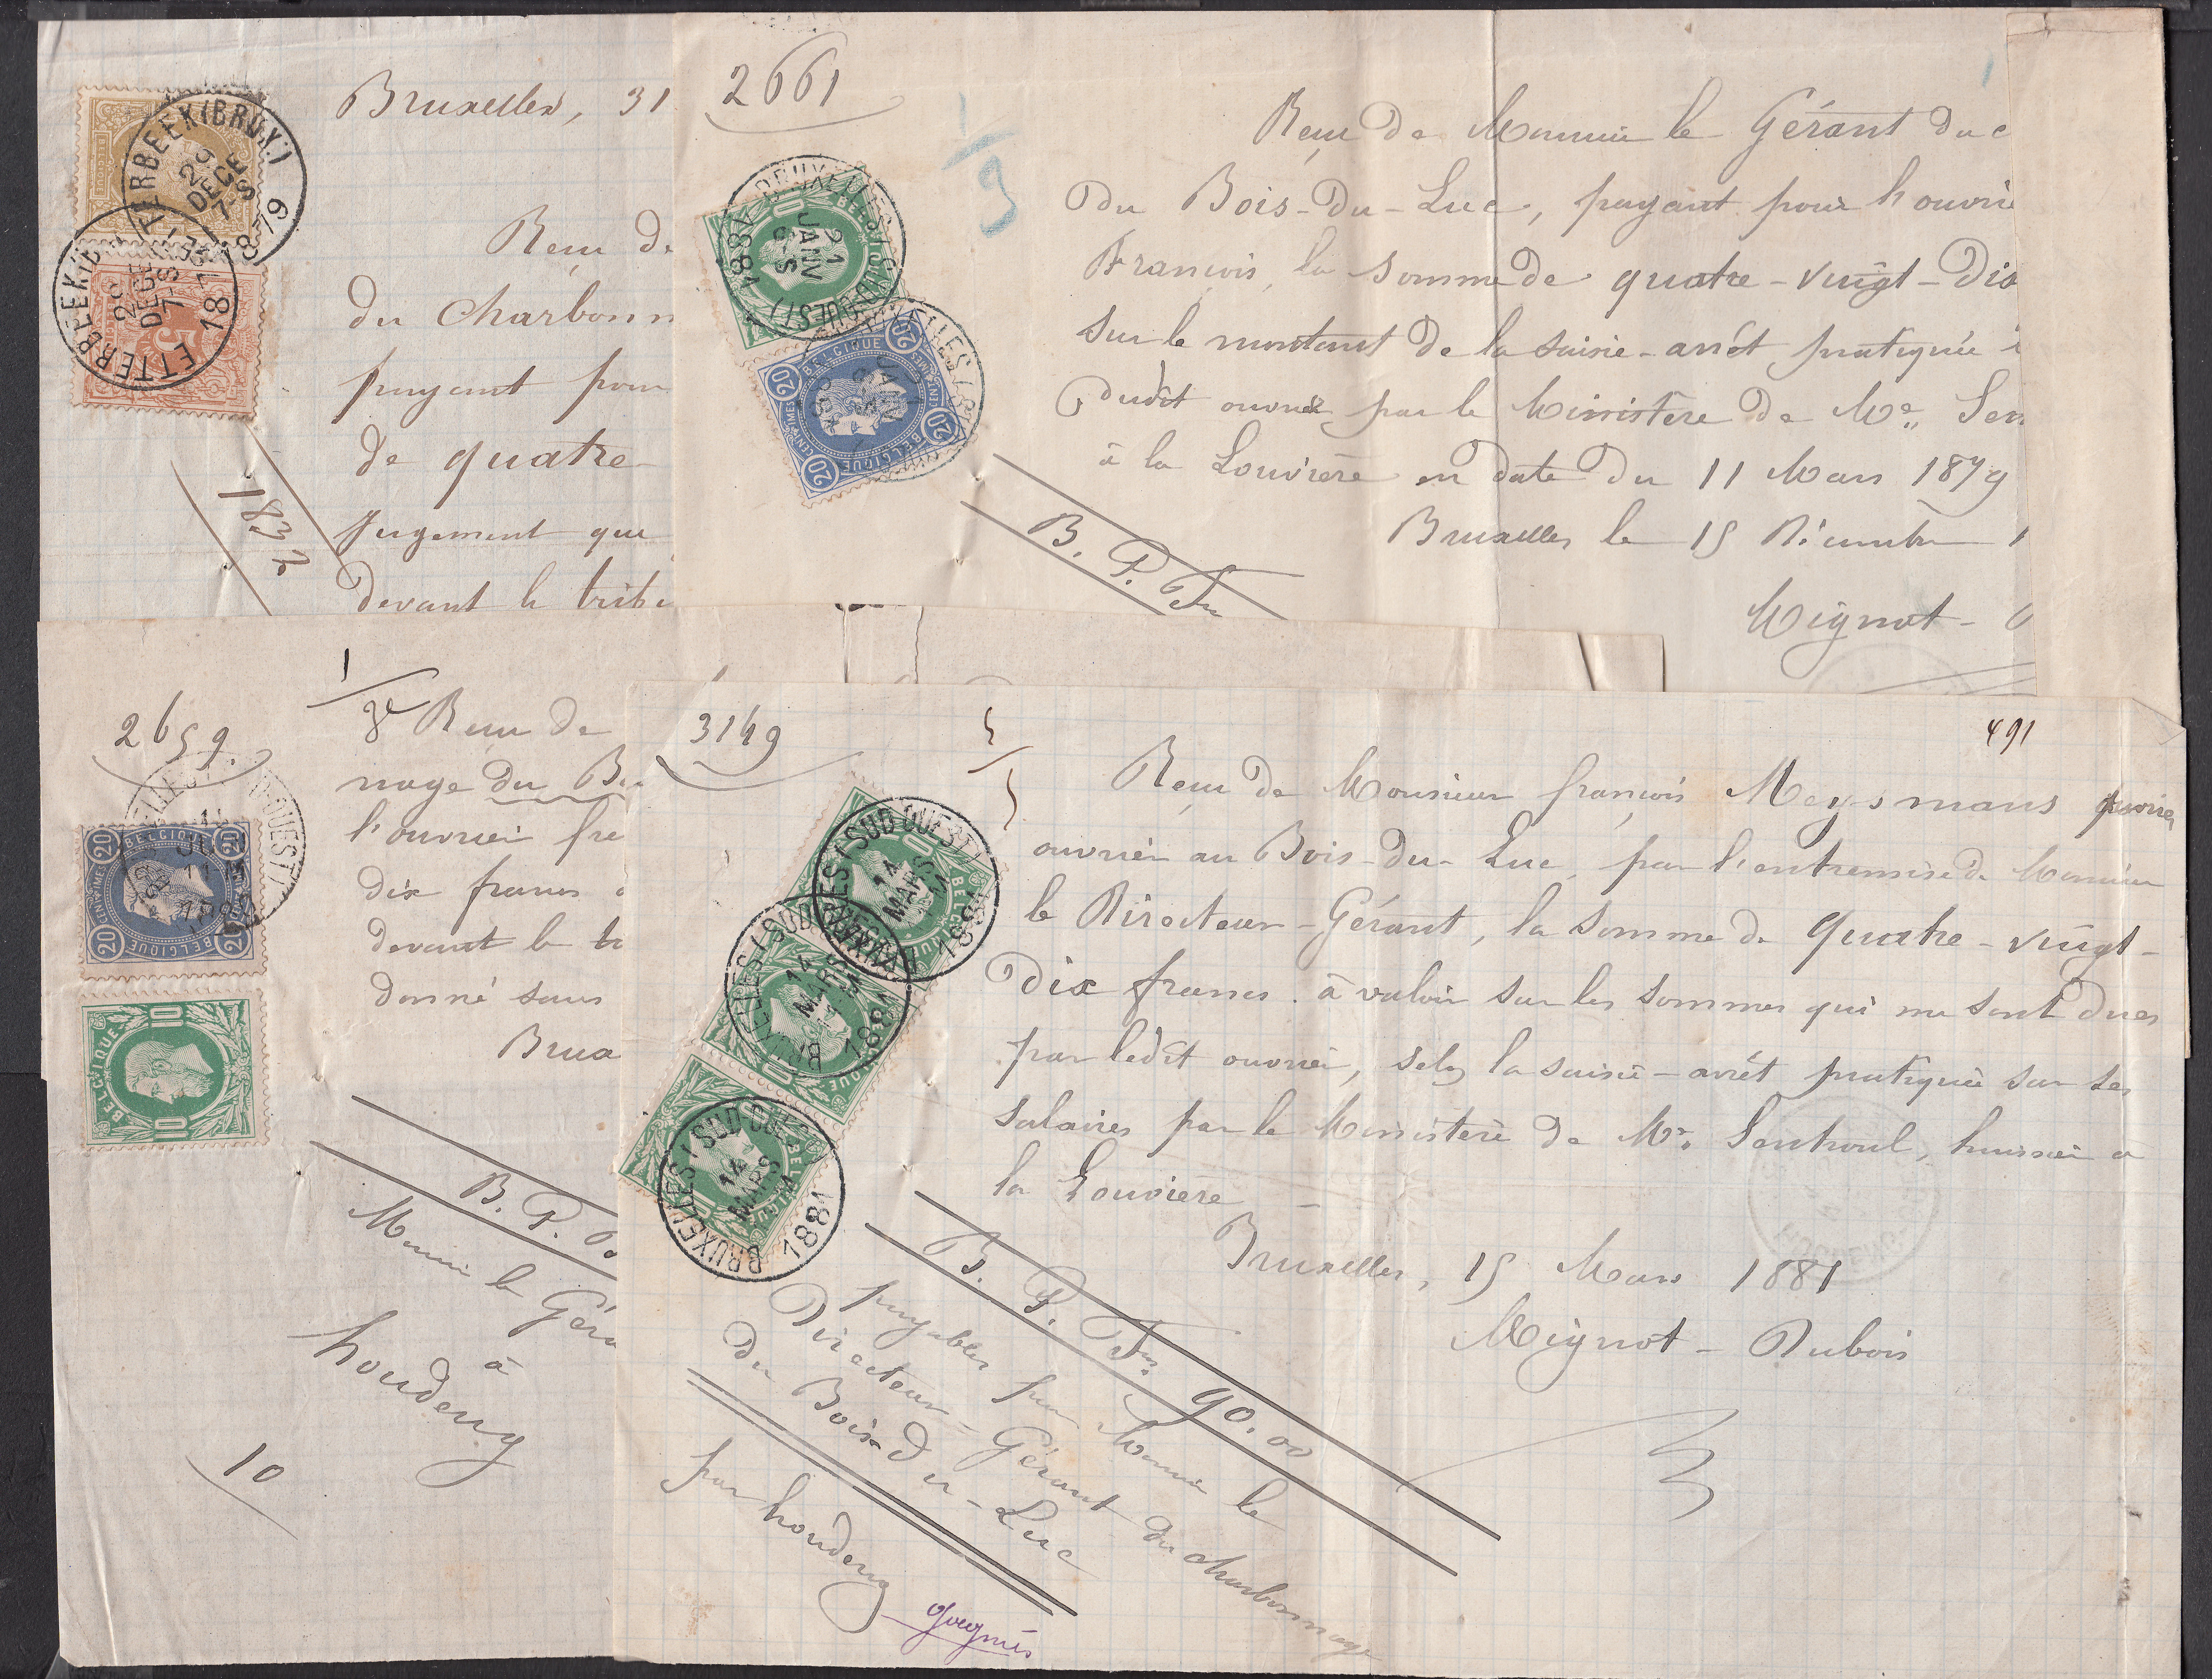 Bruxelles, 31
Reçu de
du Charbonn
payant pour
de quatre-
jugement que
devant le tribu
1832
ETTERBEEK (BRUX.)
29
DECE
7-S
1879
ETTERBEEK (
29
DECE
7-S
18
5
2661
1/9
Reçu de Monsieur le Gérant du c
du Bois-du-Luc, payant pour l'ouvrie
François, la somme de quatre-vingt-dix
sur le montant de la saisie-arrêt pratiquée à
dudit ouvrier par le Ministère de Me. Sen
à la Louvière en date du 11 Mars 1879
Bruxelles le 15 Décembre 1
Mignot-
B. P. Fr
BRUXELLES (SUD-OUEST)
21
JANV
6-S
1881
10
BELGIQUE
20
BELGIQUE
CENTIMES
20
2659.
Reçu de
nage du B
l'ouvrier fr
dix francs
devant le tr
donné sans
Brux
B. P.
Monsieur le Géra
à
houdeng
10
20
BELGIQUE
20
CENTIMES
BELGIQUE
10
3149
5/5
491
Reçu de Monsieur françois Meysmans
ouvrier au Bois-du-Luc, par l'entremise de Monsieur
le Directeur-Gérant, la somme de quatre-vingt-
dix francs à valoir sur les sommes qui me sont dues
par ledit ouvrier, selon la saisie-arrêt pratiquée sur ses
salaires par le Ministère de Me. Sentroul, huissier à
la Louvière
Bruxelles, 15 Mars 1881
Mignot-Dubois
B. P. Frs 90.00
payables par Monsieur le
Directeur-Gérant du charbonnage
du Bois-du-Luc
par houdeng
BRUXELLES (SUD OUEST)
14
MARS
1881
BRUXELLES (SUD OUEST)
14
MARS
1881
BRUXELLES (SUD OUEST)
14
MARS
1881